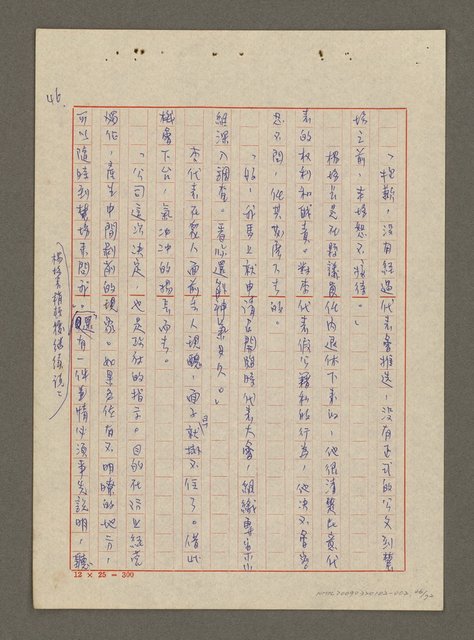 「抱歉,沒有經過代表會推選,沒有正式的公文到貴
場之前,本場恕不接待。」
楊場長是在縣議員任內退休下來的,他很清楚民意代
表的權利和職責。對李代表假公藉私的行為,他決不會容
忍
「好,我馬上就申請召開臨時代表大會,組織專案小
組深入調查。看你還能神氣多久。」
李代表在眾人面前丟人現醜,面子就掛不住了。借此
機會下台,氣沖沖的揚長而去。
「公司這次決定,也是政府的指示。目的在防止
,產生中間剝削的現象。如果各位有不明瞭的地方,
可以隨時到農場來問我。還有一件事情必須事先說明,聽
楊場長稍停後繼續說:
46
12 × 25 = 300